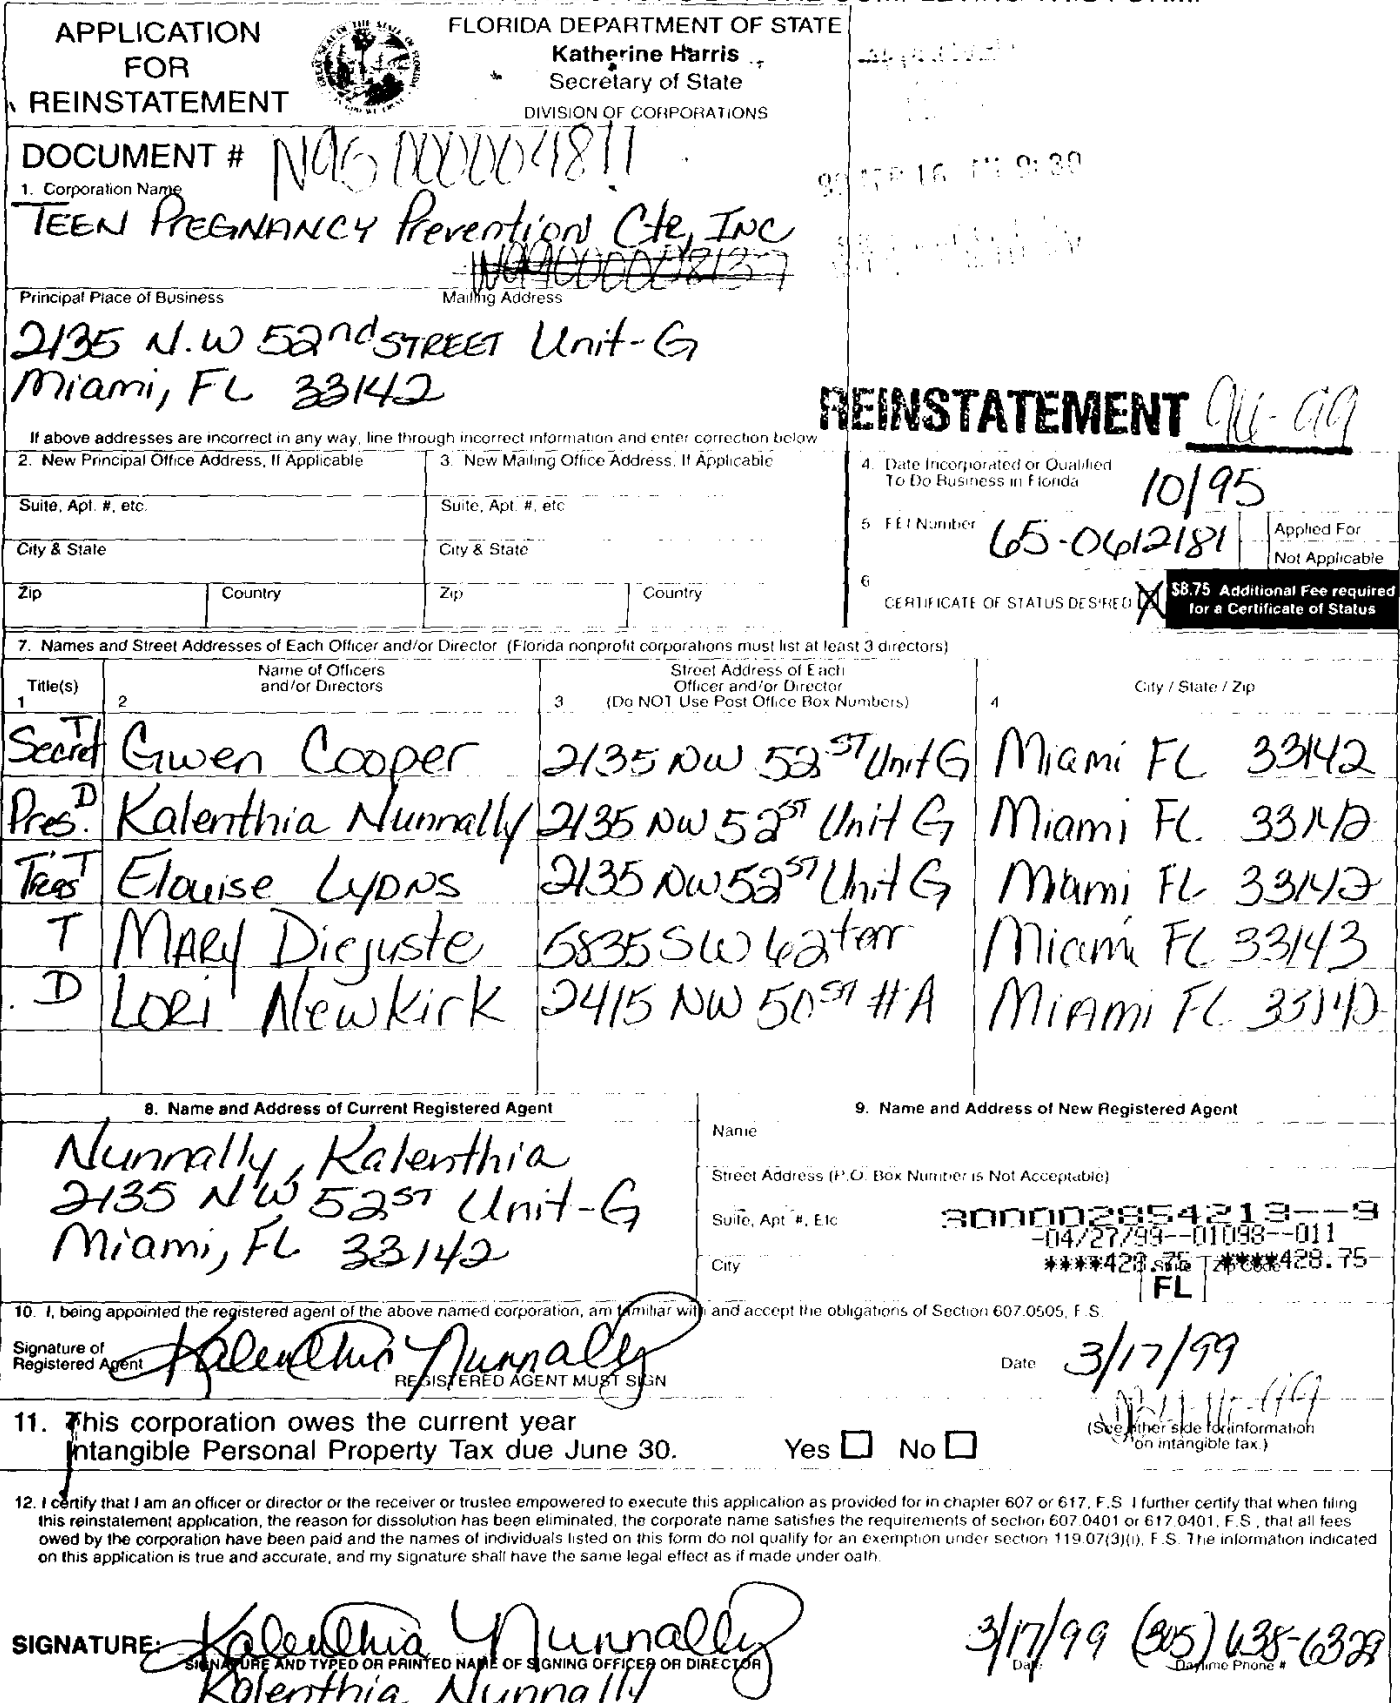 APPLICATION
FOR
REINSTATEMENT
FLORIDA DEPARTMENT OF STATE
Katherine Harris
Secretary of State
DIVISION OF CORPORATIONS
DOCUMENT # N95000004811
1. Corporation Name
TEEN PREGNANCY Prevention Ctr, INC
W99000008137
Principal Place of Business Mailing Address
2135 N.W 52nd STREET Unit-G
Miami, FL 33142
REINSTATEMENT 96-99
If above addresses are incorrect in any way, line through incorrect information and enter correction below
2. New Principal Office Address, If Applicable 3. New Mailing Office Address, If Applicable
Suite, Apt. #, etc. Suite, Apt. #, etc
City & State City & State
Zip Country Zip Country
4. Date Incorporated or Qualified
To Do Business in Florida 10/95
5 FEI Number 65-0612181 Applied For
Not Applicable
6
CERTIFICATE OF STATUS DESIRED X $8.75 Additional Fee required
for a Certificate of Status
7. Names and Street Addresses of Each Officer and/or Director (Florida nonprofit corporations must list at least 3 directors)
Title(s) Name of Officers and/or Directors Street Address of Each Officer and/or Director (Do NOT Use Post Office Box Numbers) City / State / Zip
1 2 3 4
Secret T/ Gwen Cooper 2135 NW 52 ST Unit G Miami FL 33142
Pres. D Kalenthia Nunnally 2135 NW 52 ST Unit G Miami FL 33142
Treas T Elouise Lyons 2135 NW 52 ST Unit G Miami FL 33142
T MARY Diejuste 5835 SW 62 terr Miami FL 33143
D LORI Newkirk 2415 NW 50 ST #A MIAMI FL 33142
8. Name and Address of Current Registered Agent
Nunnally, Kalenthia
2135 NW 52 ST Unit-G
Miami, FL 33142
9. Name and Address of New Registered Agent
Name
Street Address (P.O. Box Number is Not Acceptable)
Suite, Apt #, Etc
300002854213--9
-04/27/99--01093--011
****428.75 ****428.75
City State Zip Code
FL
10. I, being appointed the registered agent of the above named corporation, am familiar with and accept the obligations of Section 607.0505, F.S.
Signature of
Registered Agent Kalenthia Nunnally Date 3/17/99
REGISTERED AGENT MUST SIGN
11. This corporation owes the current year
Intangible Personal Property Tax due June 30. Yes No
(See other side for information
on intangible tax.)
12. I certify that I am an officer or director or the receiver or trustee empowered to execute this application as provided for in chapter 607 or 617, F.S I further certify that when filing
this reinstatement application, the reason for dissolution has been eliminated, the corporate name satisfies the requirements of section 607.0401 or 617.0401, F.S., that all fees
owed by the corporation have been paid and the names of individuals listed on this form do not qualify for an exemption under section 119.07(3)(i), F.S. The information indicated
on this application is true and accurate, and my signature shall have the same legal effect as if made under oath.
SIGNATURE: Kalenthia Nunnally 3/17/99 (305) 638-6329
SIGNATURE AND TYPED OR PRINTED NAME OF SIGNING OFFICER OR DIRECTOR Date Daytime Phone #
Kalenthia Nunnally